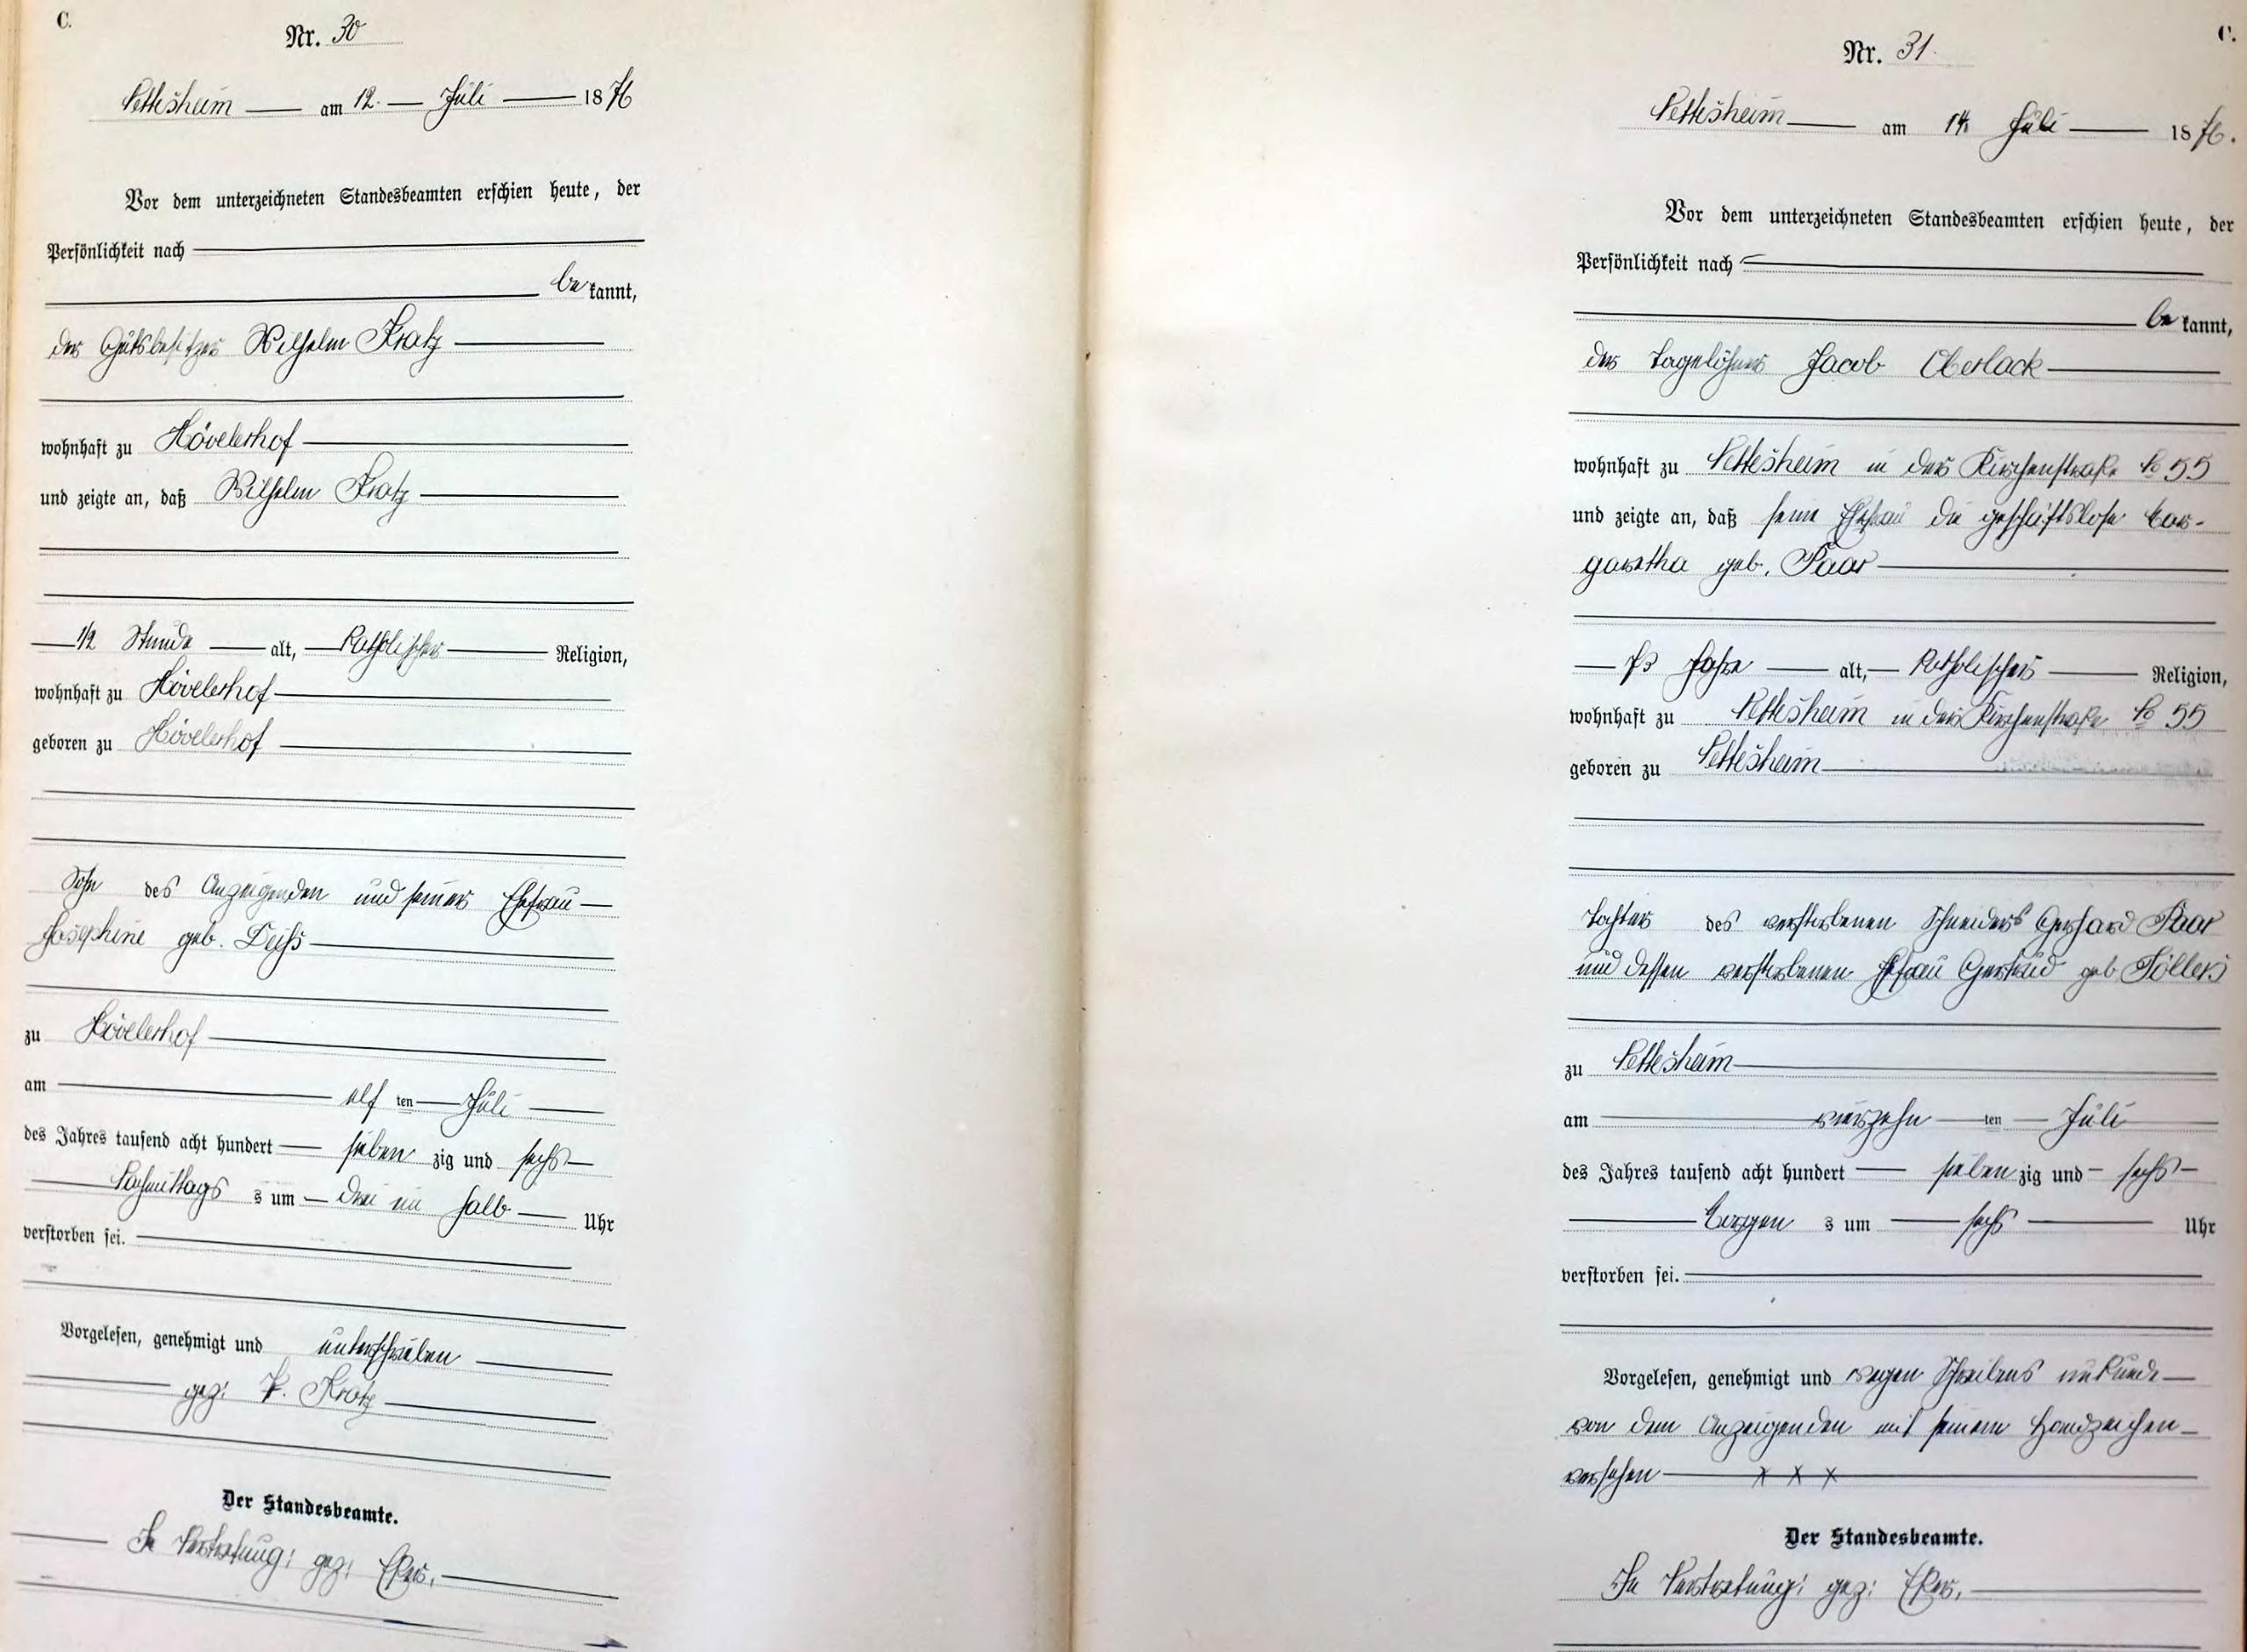 C.
Nr. 30
Nettesheim am 12. Juli 1876
Vor dem unterzeichneten Standesbeamten erschien heute, der
Persönlichkeit nach
be kannt,
der Gutsbesitzer Wilhelm Kratz
wohnhaft zu Hövelerhof
und zeigte an, daß Wilhelm Kratz
1/2 Stunde alt, Katholischer Religion,
wohnhaft zu Hövelerhof
geboren zu Hövelerhof
Sohn des Anzeigenden und seiner Ehefrau
Josephine geb.
zu Hövelerhof
am elf ten Juli
des Jahres tausend acht hundert sieben zig und sechs
Nachmittags s um drei ein halb Uhr
verstorben sei.
Vorgelesen, genehmigt und unterschrieben
gez: W. Kratz
Der Standesbeamte.
In Vertretung: gez:
C.
Nr. 31.
Nettesheim am 14. Juli 1876.
Vor dem unterzeichneten Standesbeamten erschien heute, der
Persönlichkeit nach
be kannt,
der Tagelöhner Jacob Oberlack
wohnhaft zu Nettesheim in der Kirchenstraße No 55
und zeigte an, daß seine Ehefrau die geschäftslose Mar-
garetha geb. Paar
73 Jahre alt, Katholischer Religion,
wohnhaft zu Nettesheim in der Kirchenstraße No 55
geboren zu Nettesheim
Tochter des verstorbenen Schneiders Gerhard Paar
und dessen verstorbenen Ehefrau Gertrud geb Söllers
zu Nettesheim
am vierzehn ten Juli
des Jahres tausend acht hundert sieben zig und sechs
Morgen s um sechs Uhr
verstorben sei.
Vorgelesen, genehmigt und wegen Schreibens unkunde
von dem Anzeigenden mit seinem Handzeichen
versehen x x x
Der Standesbeamte.
In Vertretung: gez: